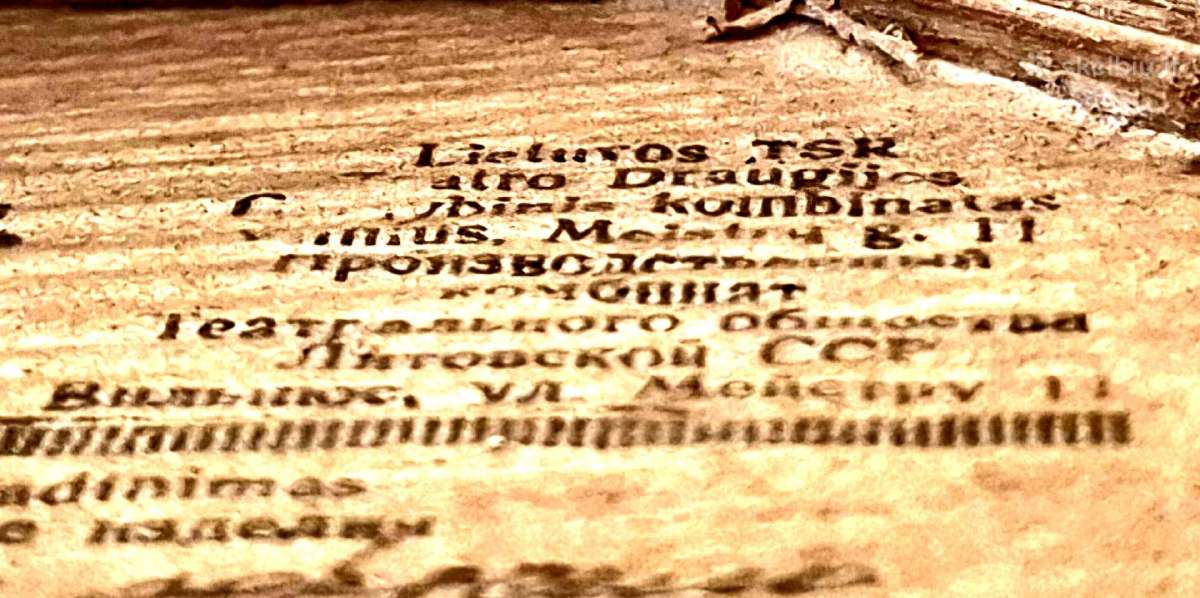 Lietuvos TSR
atro Draugijos
kombinatas
Vilnius, Meistrų g. 11
Производственный
комбинат
Театрального общества
Литовской ССР
Вильнюс, ул. Мейстру 11
adinimas
е изделия